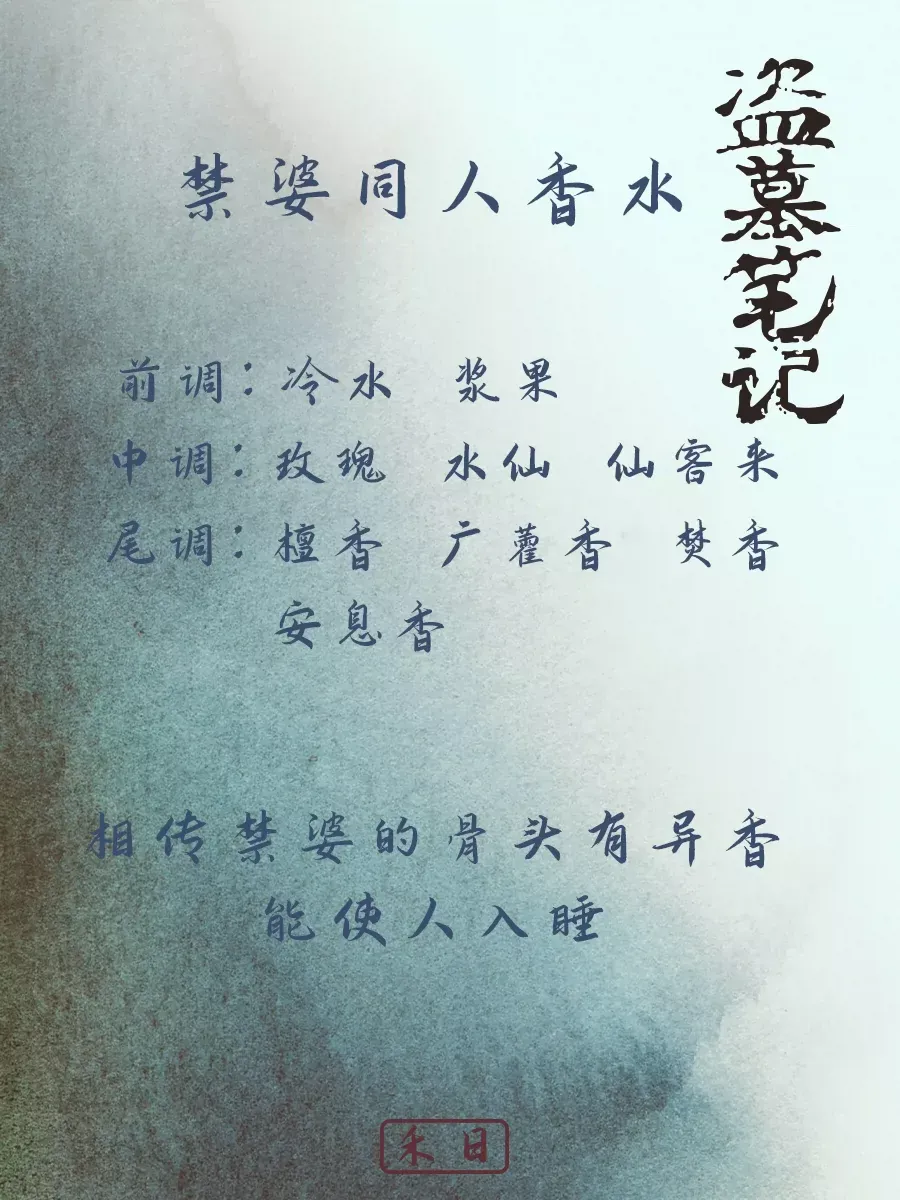 盗墓笔记
禁婆同人香水
前调：冷水 浆果
中调：玫瑰 水仙 仙客来
尾调：檀香 广藿香 焚香
安息香
相传禁婆的骨头有异香
能使人入睡
禾日